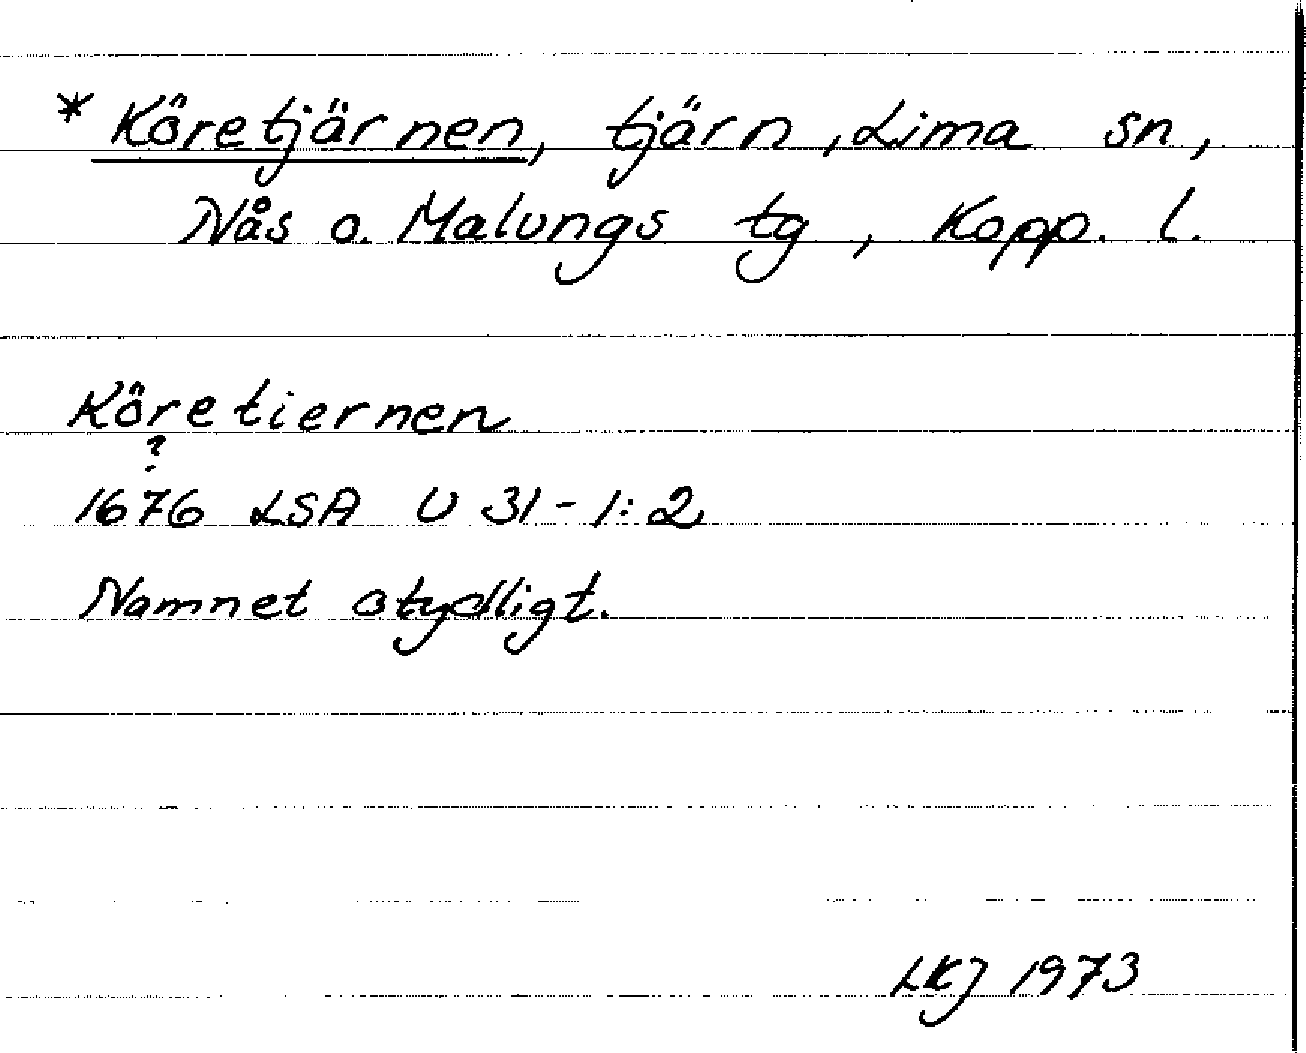 * Köretjärnen, tjärn, Lima sn,
Nås o. Malungs tg, Kopp. l.
Köretiernen
?
1676 LSA U 31-1:2
Namnet otydligt.
LKJ 1973